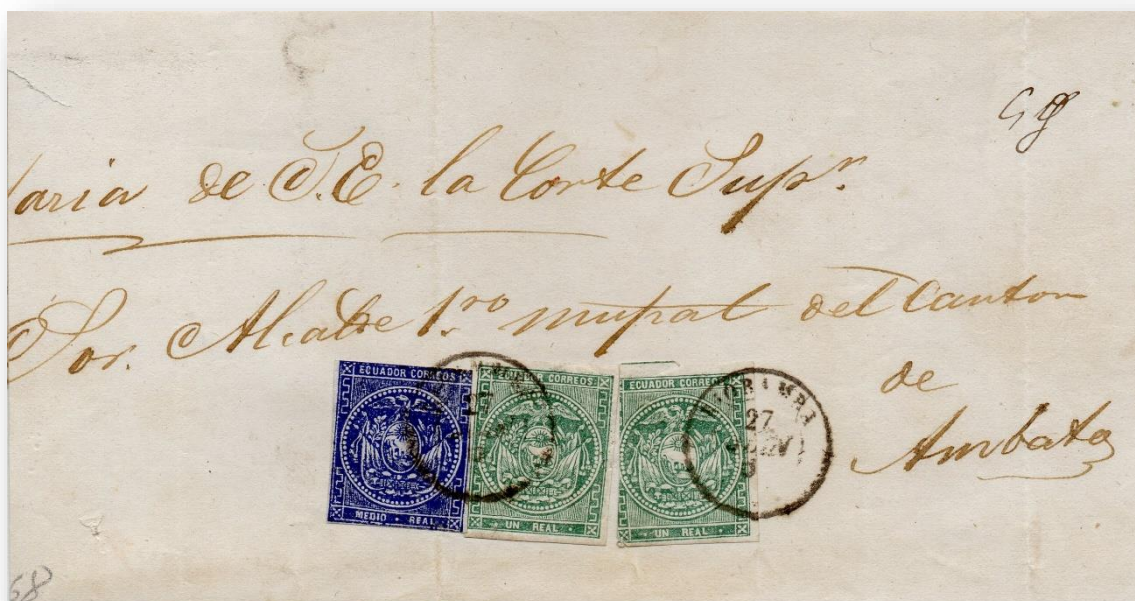 59
taria de S.E. la Corte Supr.
Sor. Alcalde 1.ro mupal del Canton
de
Ambato
ECUADOR CORREOS
MEDIO · REAL
ECUADOR CORREOS
UN REAL
ECUADOR CORREOS
UN REAL
RIOBAMBA
27
58